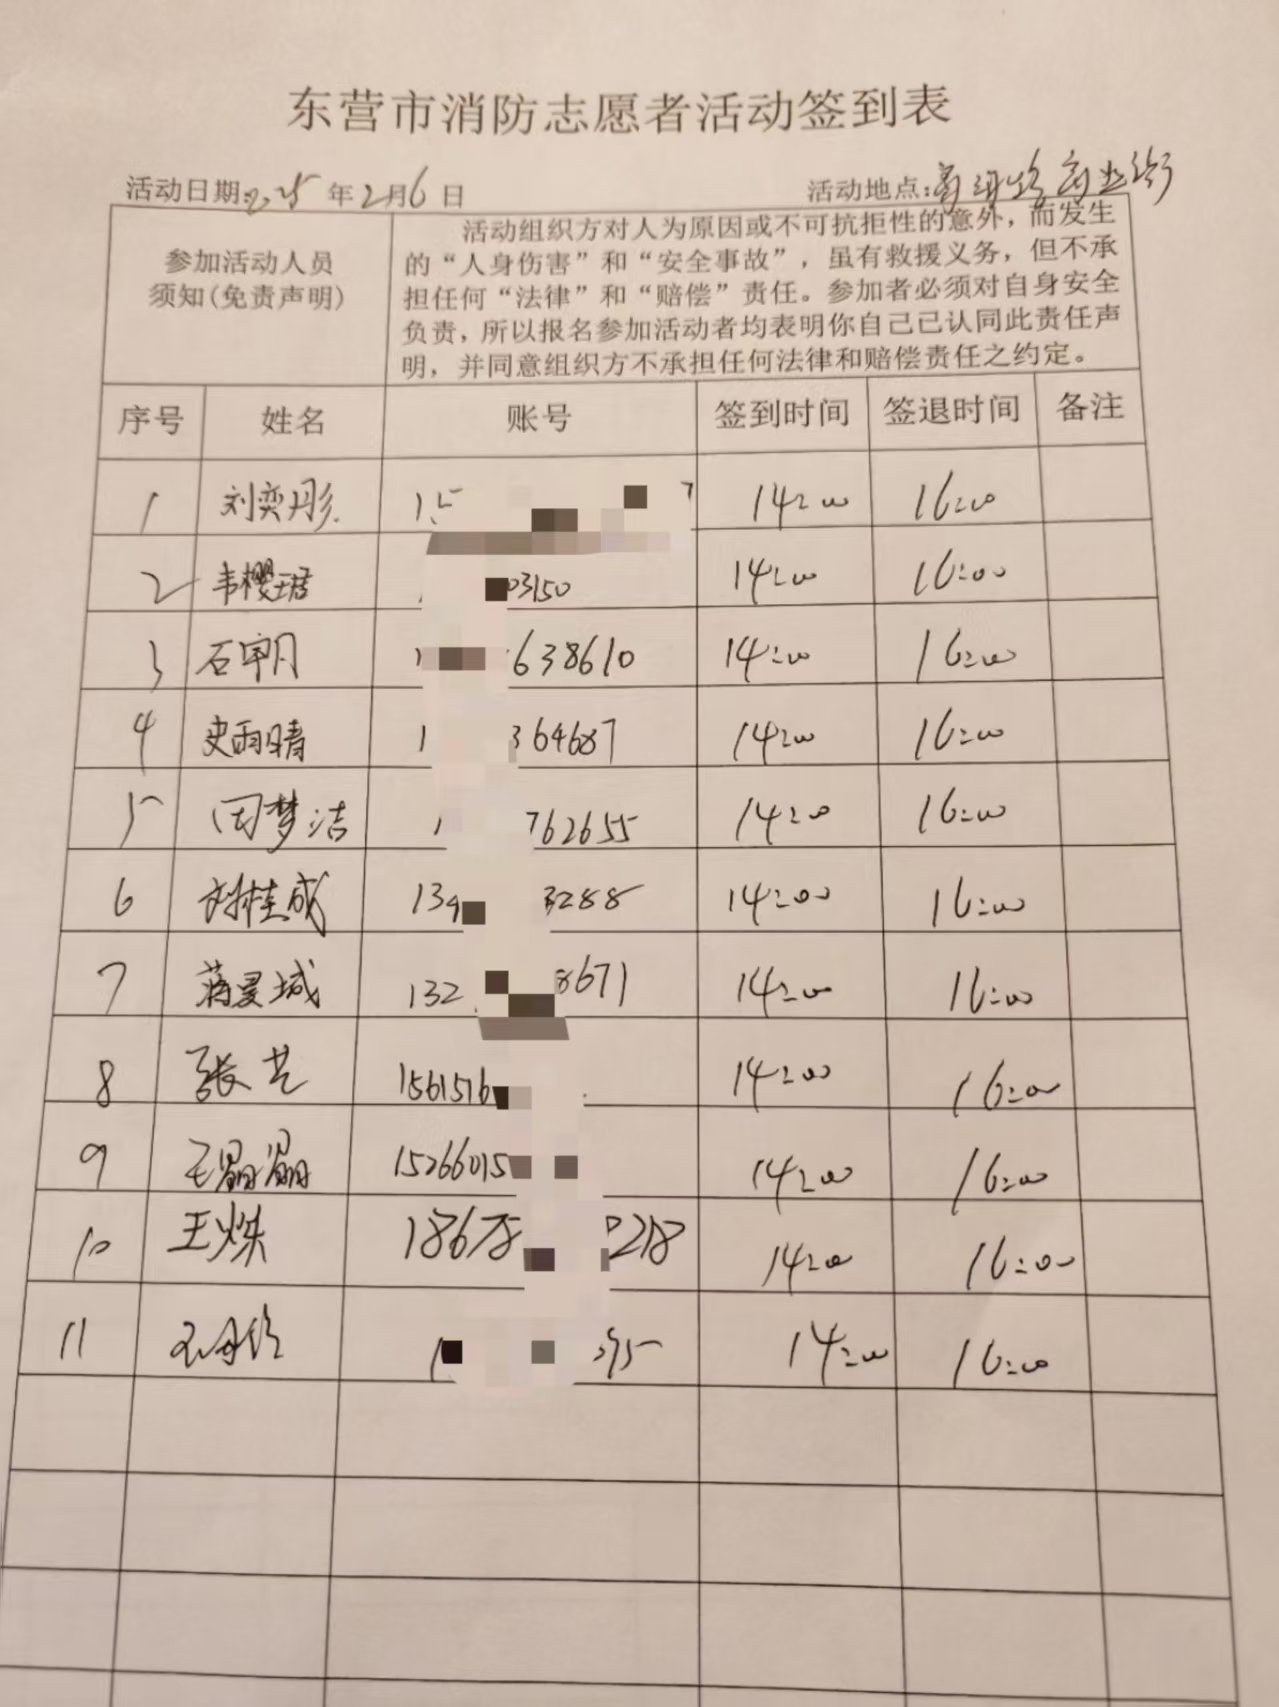 东营市消防志愿者活动签到表
活动日期:2025年2月6日 活动地点:黄河路商业街
参加活动人员
须知(免责声明)
活动组织方对人为原因或不可抗拒性的意外，而发生
的“人身伤害”和“安全事故”，虽有救援义务，但不承
担任何“法律”和“赔偿”责任。参加者必须对自身安全
负责，所以报名参加活动者均表明你自己已认同此责任声
明，并同意组织方不承担任何法律和赔偿责任之约定。
序号 姓名 账号 签到时间 签退时间 备注
1 刘奕彤 15 7 14:00 16:00
2 韦樱珺 03150 14:00 16:00
3 石 638610 14:00 16:00
4 史雨晴 1 364687 14:00 16:00
5 周梦洁 1 762655 14:00 16:00
6 刘桂成 134 3288 14:00 16:00
7 蒋曼城 132 8671 14:00 16:00
8 张艺 1561516 14:00 16:00
9 王 15266015 14:00 16:00
10 王焕 18678 0218 14:00 16:00
11 1 95 14:00 16:00